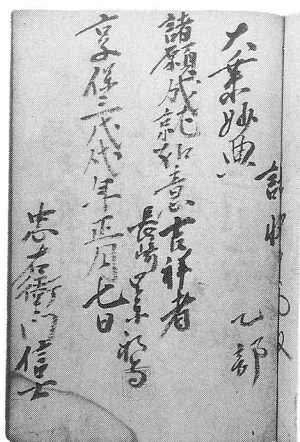 大乗妙典
乙部
諸願成就如意吉祥者
長崎
享保三戊戌年正月七日
忠右衛門信士